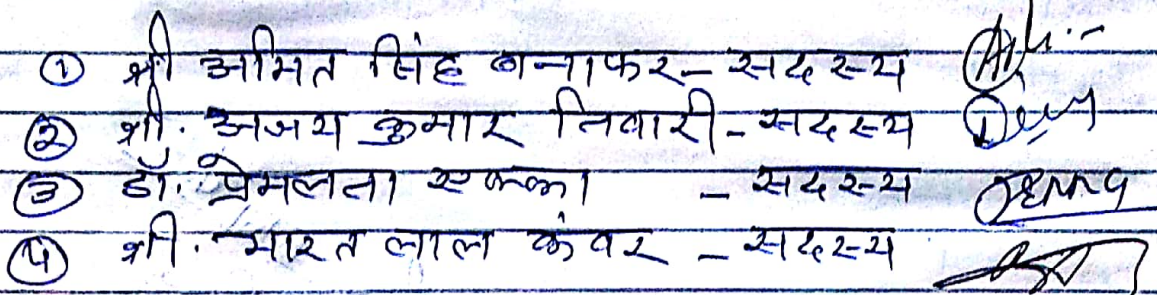 ① श्री अमित सिंह बनाफर - सदस्य
② श्री. अजय कुमार तिवारी - सदस्य
③ डॉ. प्रेमलता एक्का - सदस्य
④ श्री. भारत लाल कंवर - सदस्य